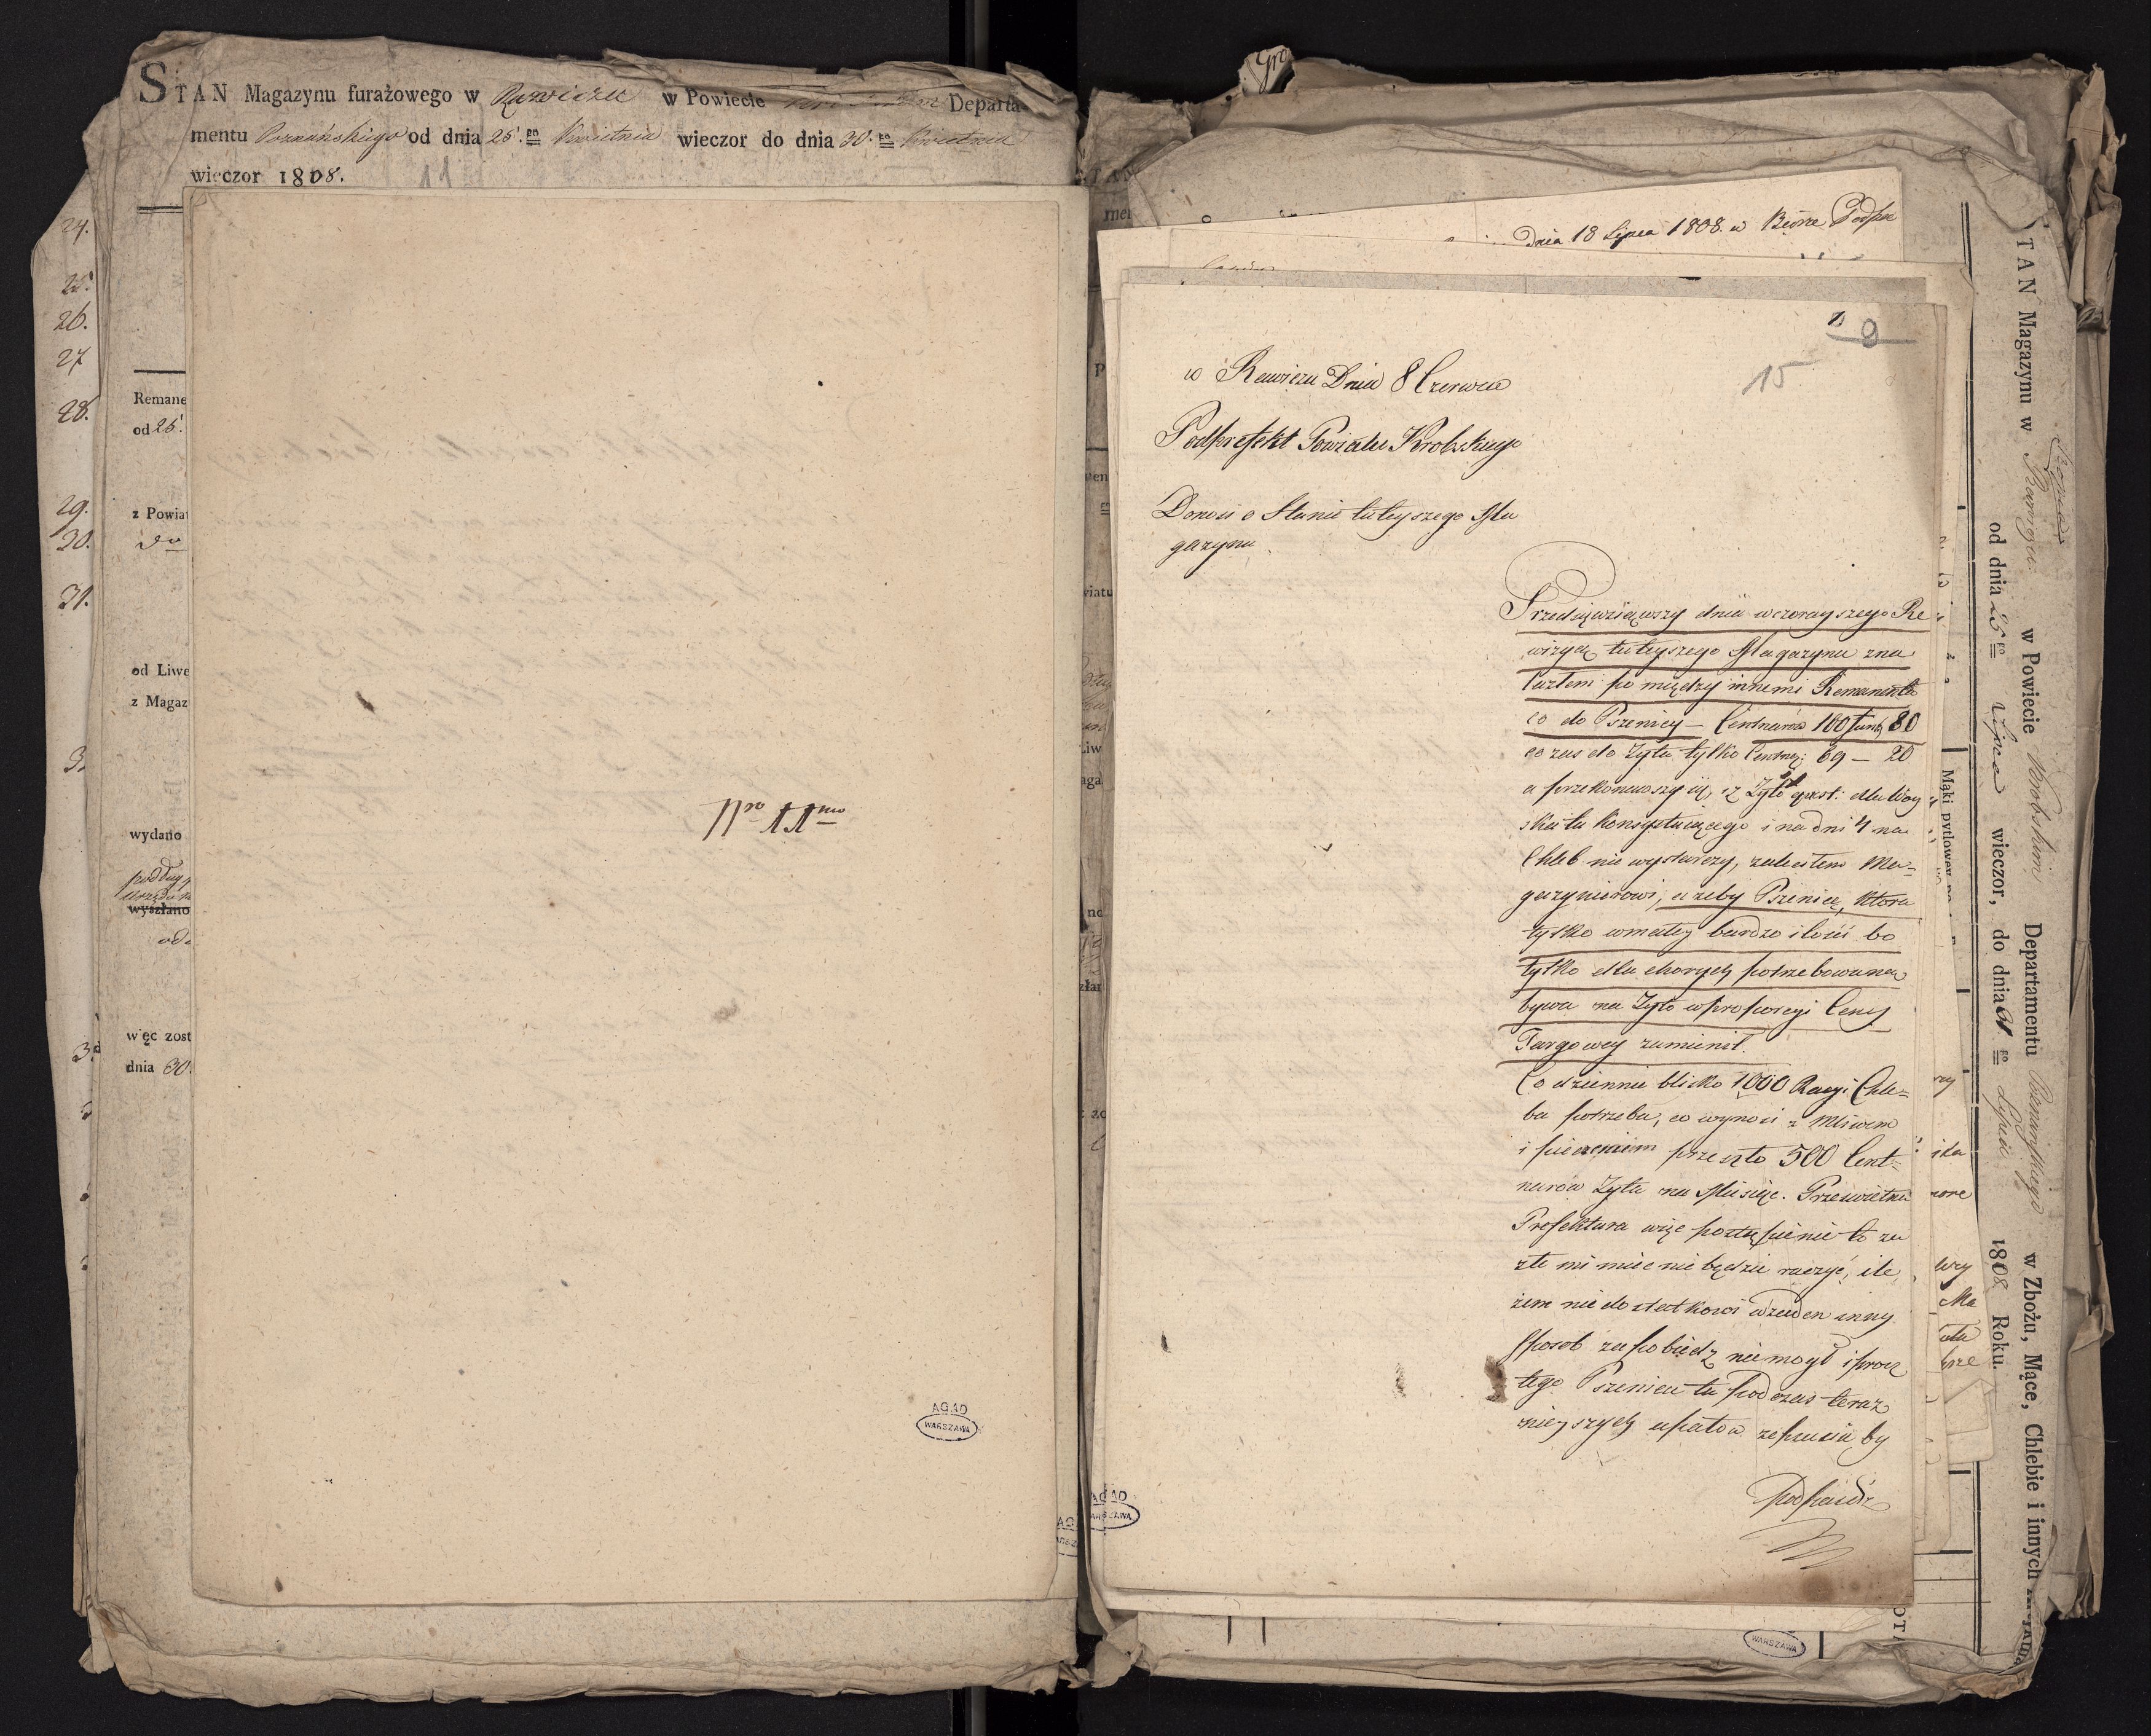 STAN Magazynu furażowego w Rawiczu w Powiecie Departa
mentu Poznańskiego od dnia 25. go Kwietnia wieczor do dnia 30. go Kwietnia
wieczor 1808.
11
24.
25.
26.
27
28.
29.
30.
31.
Remane
od 25.
z Powiat
do
od Liwe
z Magaz
wydano
podług
wyszłano
więc zost
dnia 30.
Nro 11mo
AGAD
WARSZAWA
dnia 18 Lipca 1808. w Biórze Podpre
9
15
w Rawiczu Dnia 8 Czerwca
Podprefekt Powiatu Krobskiego
Donosi o Stanie tuteyszego Ma
gazynu
Przedsięwziąwszy dnia wczorayszego Re
wizyą tuteyszego Magazynu zna
lazłem pomiędzy innemi Remanenta
co do Pszenicy — Centnarów 100 funt. 80
co zas do Zyta tylko Centnr: 69 — 20
a przekonawszy się, iż Zyto quest: dla Woy
ska tu konsystuiącego i na dni 4 na
Chleb nie wystarczy, zaleciłem Ma-
gazynierowi, azeby Pszenicę, ktora
tylko w małey bardzo ilości bo
tylko dla chorych potrzebowana
bywa na Zyto w proporcyi Ceny
Targowey zamienił.
Co dziennie blisko 1000 Racyi Chle-
ba potrzeba, co wynosi z Mliwem
i pieczeniem przeszło 500 Cent-
narów Zyta na Miesiąc. Prześwietna
Prefektura więc postąpienie to za
złe mi mieć nie będzie raczyć, ile
żem niedostatkowi w żaden inny
sposob zapobiedz nie mogł i procz
tego Pszenica ta podczas teraz
nieyszych upałow zepsucia by
podpaść
AGAD
WARSZAWA
WARSZAWA
STAN Magazynu w Rawiczu w Powiecie Krobskim Departamentu Poznańskiego w Zbożu, Mące, Chlebie i innych
od dnia 25 go Lipca wieczor, do dnia 31 go Lipca 1808 Roku.
Mąki pytlowey